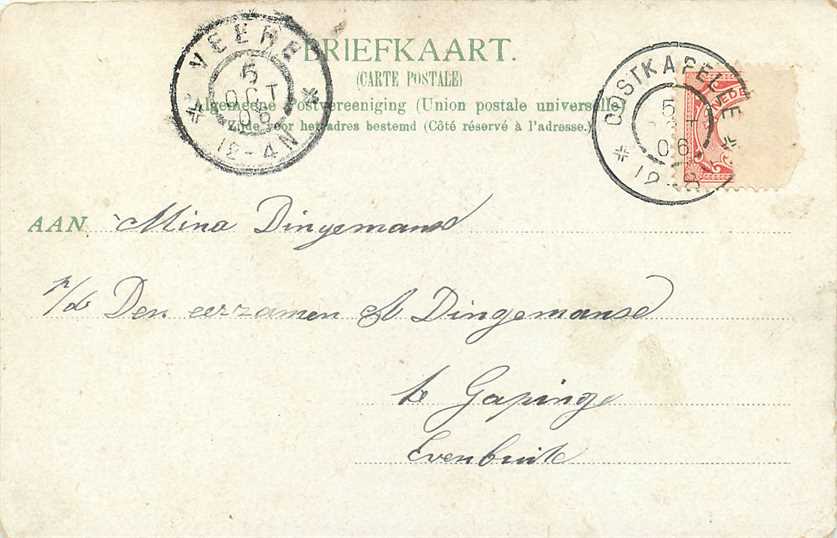 BRIEFKAART.
(CARTE POSTALE)
Algemeene Postvereeniging (Union postale universelle)
Zijde voor het adres bestemd (Côté réservé à l'adresse.)
VEERE
5
OCT
06
12-4N
OOSTKAPELLE
5
06
12-8
NEDE
AAN Mina Dingemanse
p/a Den eerzamen A Dingemanse
te Gapinge